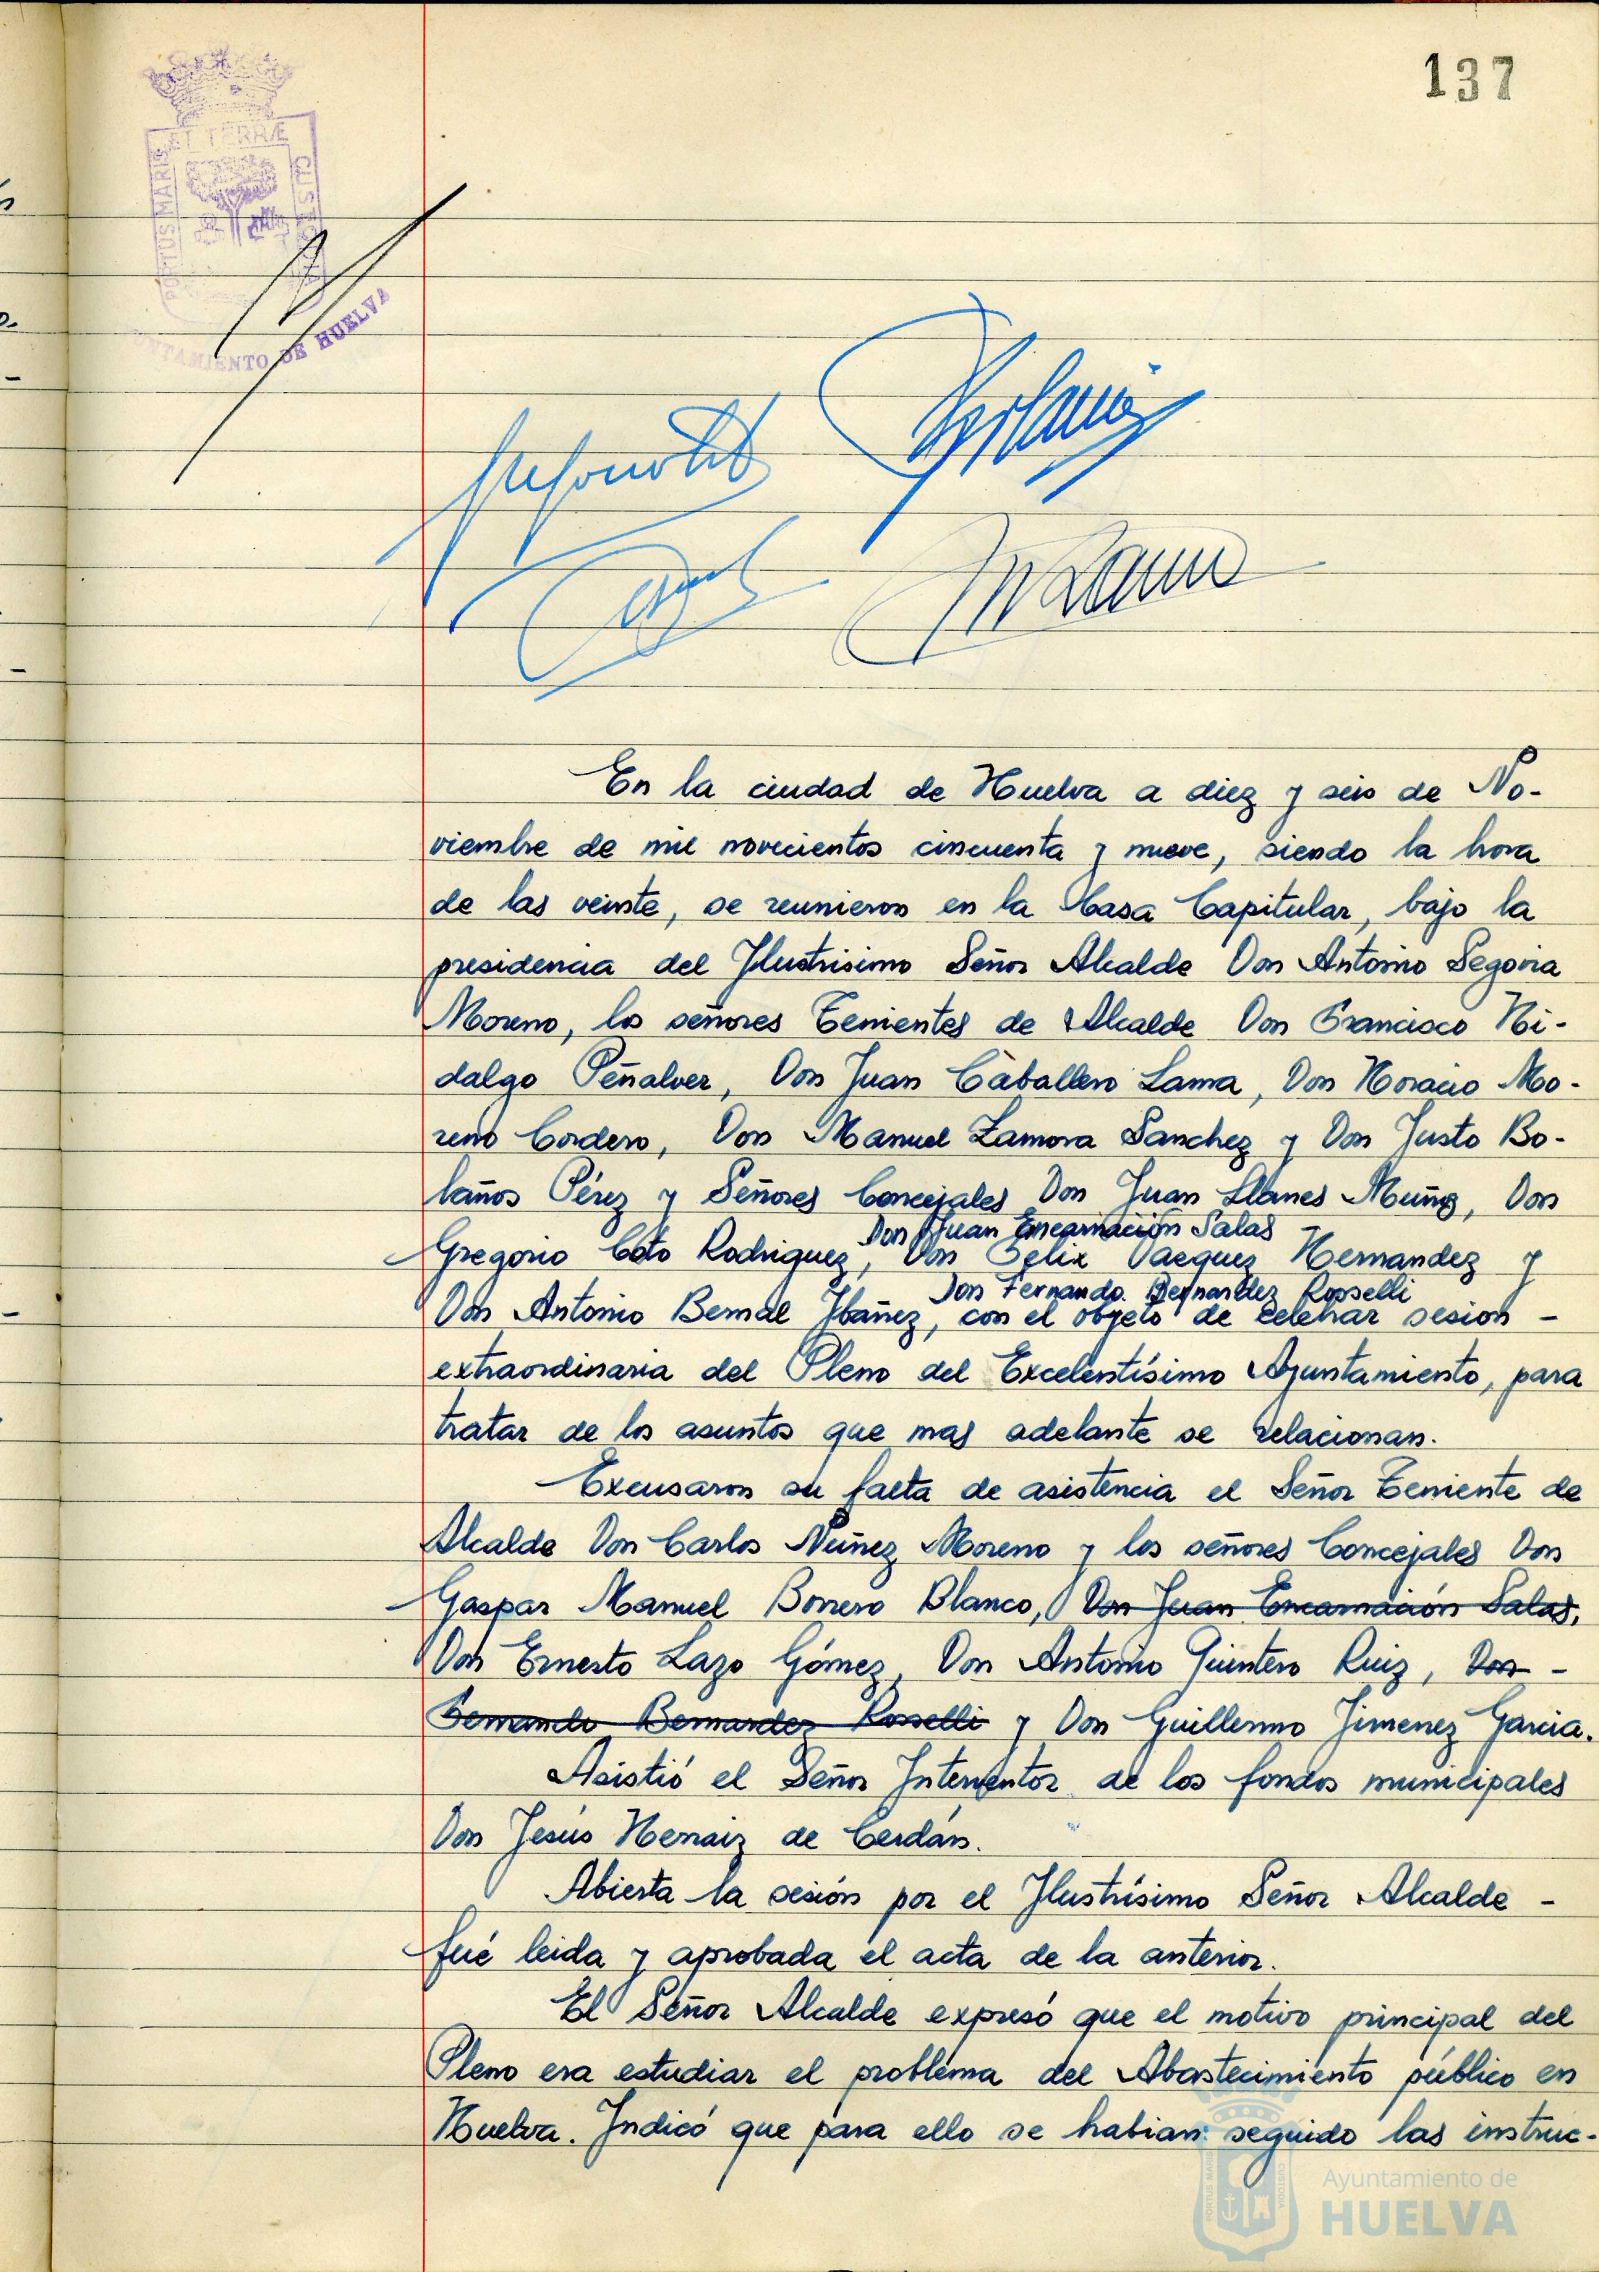 137
PORTUS MARIS ET TERRÆ CUSTODIA
AYUNTAMIENTO DE HUELVA
En la ciudad de Huelva a diez y seis de No-
viembre de mil novecientos cincuenta y nueve, siendo la hora
de las veinte, se reunieron en la Casa Capitular, bajo la
presidencia del Ilustrisimo Señor Alcalde Don Antonio Segovia
Moreno, los señores Tenientes de Alcalde Don Francisco Hi-
dalgo Peñalver, Don Juan Caballero Lama, Don Horacio Mo-
reno Cordero, Don Manuel Zamora Sanchez y Don Justo Bo-
laños Pérez y Señores Concejales Don Juan Llanes Muñoz, Don
Don Juan Encarnación Salas
Gregorio Coto Rodriguez, Don Felix Vazquez Hernandez y
Don Fernando Bernardez Rosselli
Don Antonio Bernal Ibáñez, con el objeto de celebrar sesion -
extraordinaria del Pleno del Excelentísimo Ayuntamiento, para
tratar de los asuntos que mas adelante se relacionan.
Excusaron su falta de asistencia el Señor Teniente de
Alcalde Don Carlos Núñez Moreno y los señores Concejales Don
Gaspar Manuel Borrero Blanco, Don Juan Encarnación Salas,
Don Ernesto Lazo Gómez, Don Antonio Quintero Ruiz, Don -
Fernando Bernardez Rosselli y Don Guillermo Jimenez Garcia.
Asistió el Señor Interventor de los fondos municipales
Don Jesús Hernaiz de Cerdán.
Abierta la sesión por el Ilustrísimo Señor Alcalde -
fué leida y aprobada el acta de la anterior.
El Señor Alcalde expresó que el motivo principal del
Pleno era estudiar el problema del Abastecimiento público en
Huelva. Indicó que para ello se habian seguido las instruc-
Ayuntamiento de
HUELVA